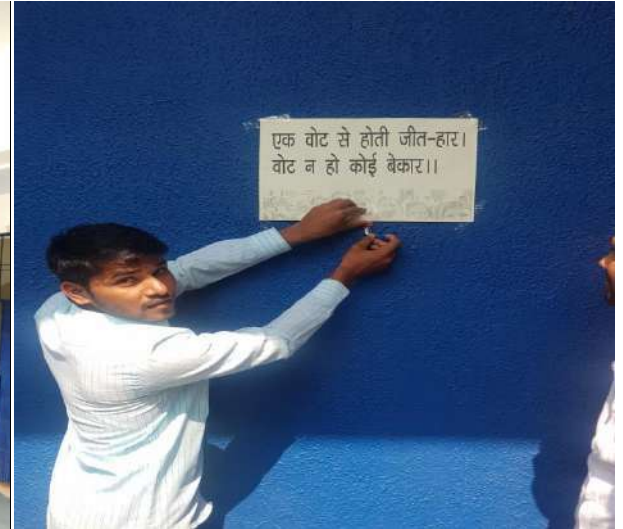 एक वोट से होती जीत-हार।
वोट न हो कोई बेकार।।